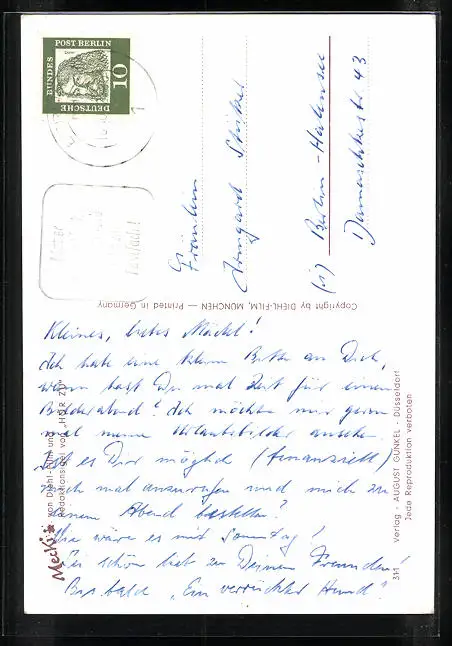 DEUTSCHE
BUNDES
POST BERLIN
10
Fräulein
Irmgard Stricker
Berlin-Halensee
Damaschkestr 43
Copyright by DIEHL-FILM, MÜNCHEN — Printed in Germany
Kleines, liebes Mädel!
Ich habe eine kleine Bitte an Dich,
wann hast Du mal Zeit für einen
Bilderabend? Ich möchte mir gern
mal meine Urlaubsbilder ansehen.
Ist es Dir möglich (finanziell)
mich mal anzurufen und mich zu
einem Abend bestellen?
Wie wäre es mit Sonntag?
Sei schön lieb zu Deinen Freunden!
Bis bald „Ein verrückter Hund"
Mecki
von Diehl-Film und
Redaktionsigel von „HÖR ZU"
311 Verlag - AUGUST GUNKEL - DÜSSELDORF
Jede Reproduktion verboten